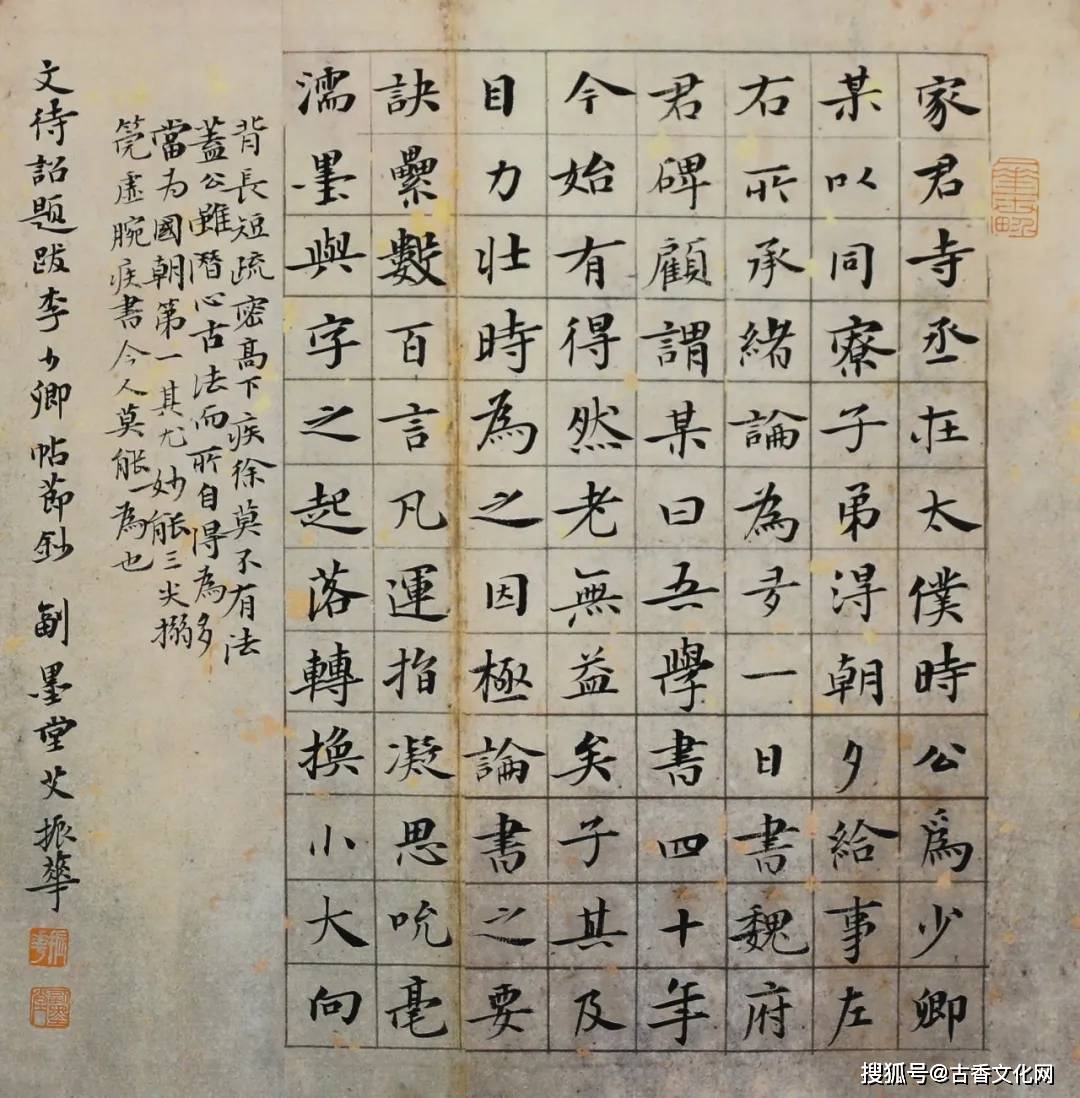 家君寺丞在太僕時公爲少卿
某以同寮子弟得朝夕給事左
右所承緒論為多一日書魏府
君碑顧謂某曰吾學書四十年
今始有得然老無益矣子其及
目力壯時為之因極論書之要
訣纍數百言凡運指凝思吮毫
濡墨與字之起落轉換小大向
背長短疏密高下疾徐莫不有法
蓋公雖潛心古法而所自得為多
當为國朝第一其尤妙能三尖搦
筦虛腕疾書今人莫能為也
文待詔題跋李少卿帖節鈔 墨堂艾振華
搜狐号@古香文化网